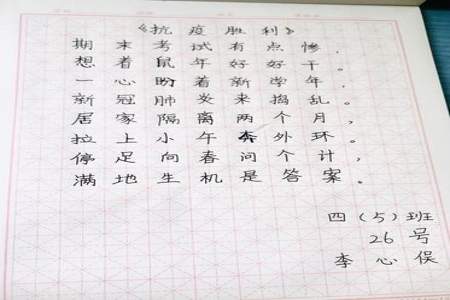 《抗疫胜利》
期末考试有点惨，
想着鼠年好好干。
一心盼着新学年，
新冠肺炎来捣乱。
居家隔离两个月，
拉上小午奔外环。
停足向春问个计，
满地生机是答案。
四（5）班
26号
李心俣